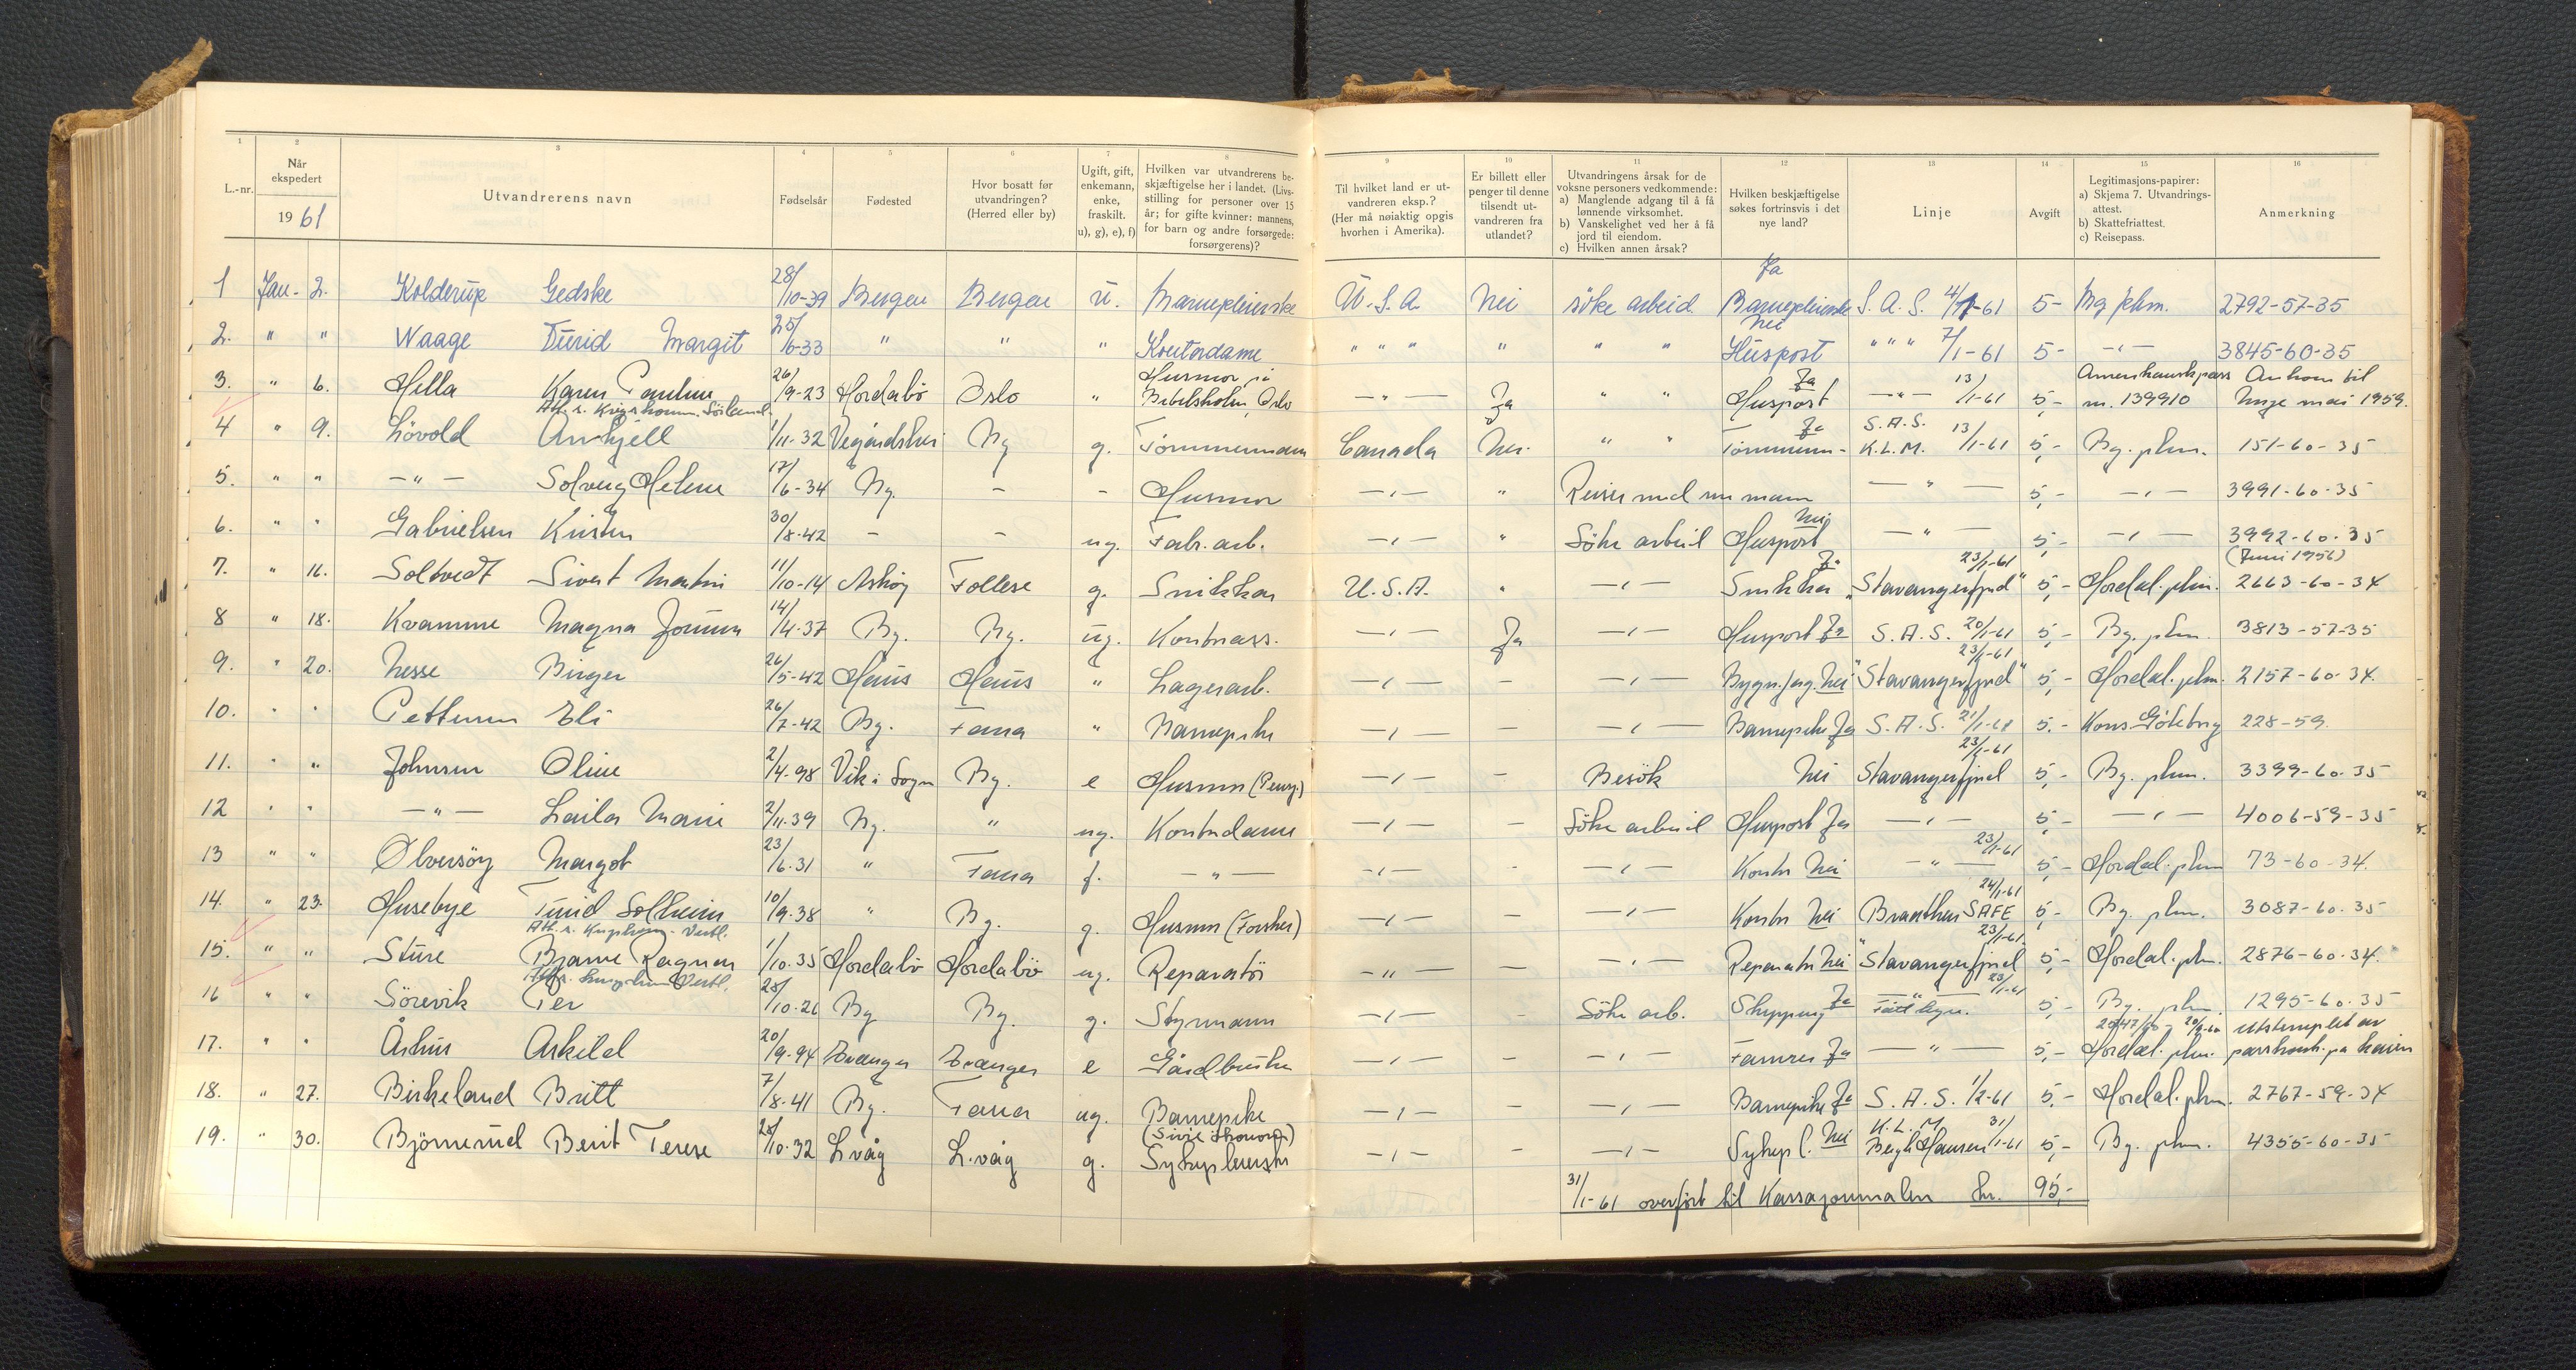 1 2 3 4 5 6 7 8 9 10 11 12 13 14 15 16
L.-nr. Når ekspedert 1961 Utvandrerens navn Fødselsår Fødested Hvor bosatt før utvandringen? (Herred eller by) Ugift, gift, enkemann, enke, fraskilt. u), g), e), f) Hvilken var utvandrerens beskjæftigelse her i landet. (Livsstilling for personer over 15 år; for gifte kvinner: mannens, for barn og andre forsørgede: forsørgerens)? Til hvilket land er utvandreren eksp.? (Her må nøiaktig opgis hvorhen i Amerika). Er billett eller penger til denne tilsendt utvandreren fra utlandet? Utvandringens årsak for de voksne personers vedkommende: a) Manglende adgang til å få lønnende virksomhet. b) Vanskelighet ved her å få jord til eiendom. c) Hvilken annen årsak? Hvilken beskjæftigelse søkes fortrinsvis i det nye land? Linje Avgift Legitimasjons-papirer: a) Skjema 7. Utvandringsattest. b) Skattefriattest. c) Reisepass. Anmerkning
1 Jan. 2. Kolderup Gedske 28/10-39 Bergen Bergen u. Barnepleierske U.S.A. Nei søke arbeid Ja Barnepleierske S.A.S. 4/1-61 5- Bg pkm. 2792-57-35
2. " " Waage Turid Margit 25/6-33 " " " Kontordame " " " " " " Nei Huspost " " " 7/1-61 5- -"- 3845-60-35
3. " 6. Hella Karen Pauline 26/9-23 Hordabø Oslo " Husmor på Oslo -"- Ja " " Ja Huspost -"- 13/1-61 5,- Amerikansk pass nr. 139910 Ankom til Norge mai 1959.
Att. s. Krigskomm. Sørland.
4 " 9. Løvold Arnkjell 1/11-32 Vegårdshei Bg g. Tømmermann Canada Nei. " " Ja Tømmerm- S.A.S. K.L.M. 13/1-61 5,- Bg. pkm. 151-60-35
5. " " -"- Solveig Helene 17/6-34 Bg. - - Husmor -"- " Reiser med sin mann -"- 5,- -"- 3991-60-35
6. " " Gabrielsen Kirsten 30/8-42 - - ug. Fabr. arb. -"- " Søke arbeid Nei Huspost -"- 5,- -"- 3992-60-35
7. " 16. Soltvedt Sivert Martin 11/10-14 Askøy Follese g. Snikker U.S.A. " -"- Ja Snikker "Stavangerfjord" 23/1-61 5,- Hordal. pkm. (Juni 1956) 2663-60-34
8 " 18. Kvamme Magna Jorunn 14/4-37 Bg. Bg. ug. Kontorass. -"- Ja -"- Huspost Ja S.A.S. 20/1-61 5,- Bg. pkm. 3813-57-35
9. " 20. Nesse Birger 26/5-42 Haus Haus " Lagerarb. -"- - -"- Bygn.fag. Nei "Stavangerfjord" 23/1-61 5,- Hordal. pkm. 2157-60-34.
10. " " Pettersen Eli 26/7-42 Bg. Fana " Barnepike -"- - -"- Barnepike Ja S.A.S. 21/1-61 5.- Kons. Göteborg 228-59.
11. " " Johnsen Oline 2/4-98 Vik i Sogn Bg. e Husmor (Pensj.) -"- - Besøk Nei Stavangerfjord 23/1-61 5,- Bg. pkm. 3399-60-35
12 " " -"- Laila Marie 2/11-39 Bg. " ug. Kontordame -"- - Søke arbeid Huspost Ja -"- 5,- -"- 4006-59-35
13 " " Ølversøy Margot 23/6-31 " Fana f. -"- -"- - -"- Kontor Nei -"- 23/1-61 5,- Hordal. pkm 73-60-34.
14. " 23. Husebye Turid Solheim 10/9-38 " Bg. g. Husmor (Forsker) -"- - -"- Kontor Nei Braathen SAFE 24/1-61 5,- Bg. pkm. 3087-60-35
Att. s. Vestl.
15. " " Sture Bjarne Ragnar 1/10-35 Hordabø Hordabø ug. Reparatør -"- - -"- Reparatør Nei "Stavangerfjord 23/1-61 5,- Hordal. pkm. 2876-60-34.
Vestl.
16 " " Sørevik Per 28/10-26 Bg Bg. g. Styrmann -"- - Søke arb. Shipping Ja 23/1-61 5,- Bg. pkm. 1295-60-35
17. " " Århus Askild 20/9-94 Evanger Evanger e Gårdbruker -"- - -"- Farmer Ja -"- 5,- Hordal. pkm. utstemplet av passkontr. på kaien
18. " 27. Birkeland Britt 7/8-41 Bg. Fana ug. Barnepike -"- - -"- Barnepike Ja S.A.S. 1/2-61 5.- Hordal. pkm. 2767-59-34
19. " 30. Bjørnerud Berit Terese 28/10-32 L.våg L.våg g. Sykepleierske -"- - -"- Sykepl. Nei K.L.M. Bergh Hansen 31/1-61 5,- Bg. pkm. 4355-60-35
31/1-61 overført til Kassajournalen kr. 95,-